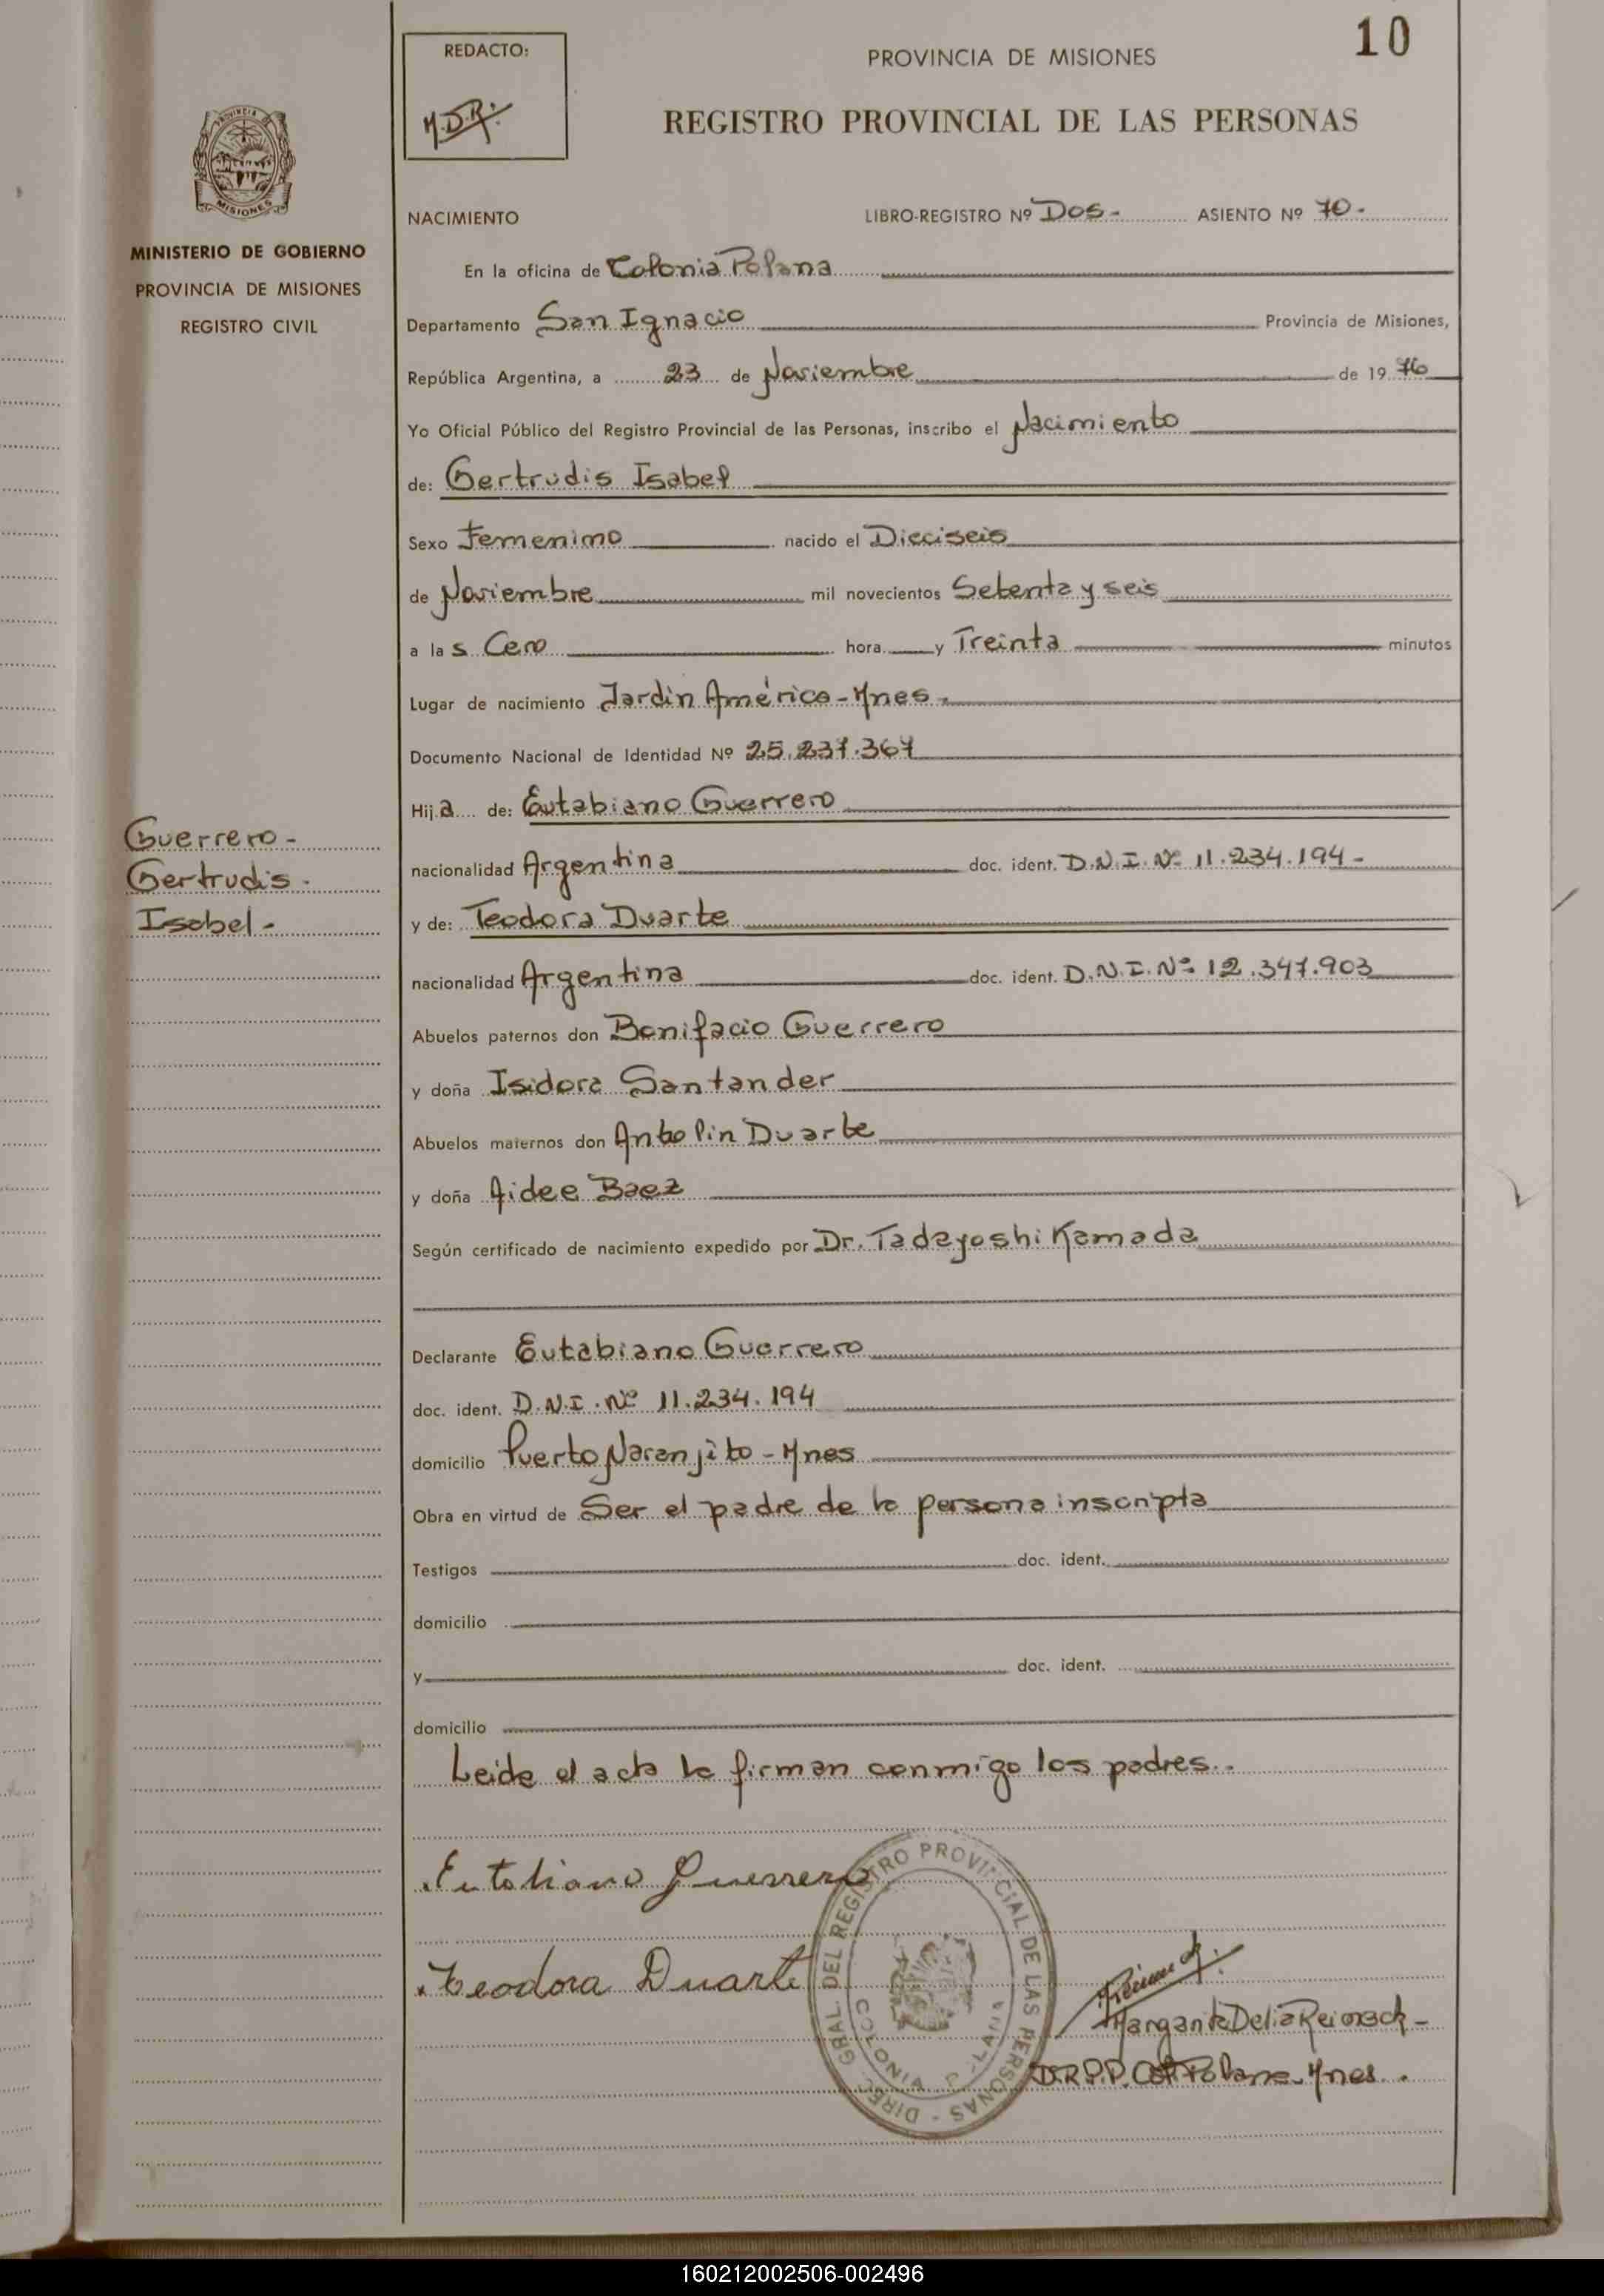 10
REDACTO:
M.D.R.
PROVINCIA DE MISIONES
REGISTRO PROVINCIAL DE LAS PERSONAS
MISIONES
MINISTERIO DE GOBIERNO
PROVINCIA DE MISIONES
REGISTRO CIVIL
NACIMIENTO LIBRO-REGISTRO Nº Dos - ASIENTO Nº 70 -
En la oficina de Colonia Polana
Departamento San Ignacio Provincia de Misiones,
República Argentina, a 23 de Noviembre de 19 76
Yo Oficial Público del Registro Provincial de las Personas, inscribo el Nacimiento
de: Gertrudis Isabel
Sexo Femenino nacido el Dieciseis
de Noviembre mil novecientos Setenta y seis
a la s Cero hora y Treinta minutos
Lugar de nacimiento Jardín América - Mnes -
Documento Nacional de Identidad Nº 25.237.367
Hij a de: Eutabiano Guerrero
Guerrero -
Gertrudis -
Isabel -
nacionalidad Argentina doc. ident. D.N.I. Nº 11.234.194 -
y de: Teodora Duarte
nacionalidad Argentina doc. ident. D.N.I. Nº 12.347.903
Abuelos paternos don Bonifacio Guerrero
y doña Isidora Santander
Abuelos maternos don Antolin Duarte
y doña Aidee Baez
Según certificado de nacimiento expedido por Dr. Tadayoshi Kamada
Declarante Eutabiano Guerrero
doc. ident. D.N.I. Nº 11.234.194
domicilio Puerto Naranjito - Mnes
Obra en virtud de Ser el padre de la persona inscripta
Testigos doc. ident.
domicilio
y doc. ident.
domicilio
Leida el acta la firman conmigo los padres..
Eutabiano Guerrero
Teodora Duarte
DIREC. GRAL. DEL REGISTRO PROVINCIAL DE LAS PERSONAS -
COLONIA P LANA
Margarita Delia Reimack -
D.R.P.P. Col Polana - Mnes.
160212002506-002496